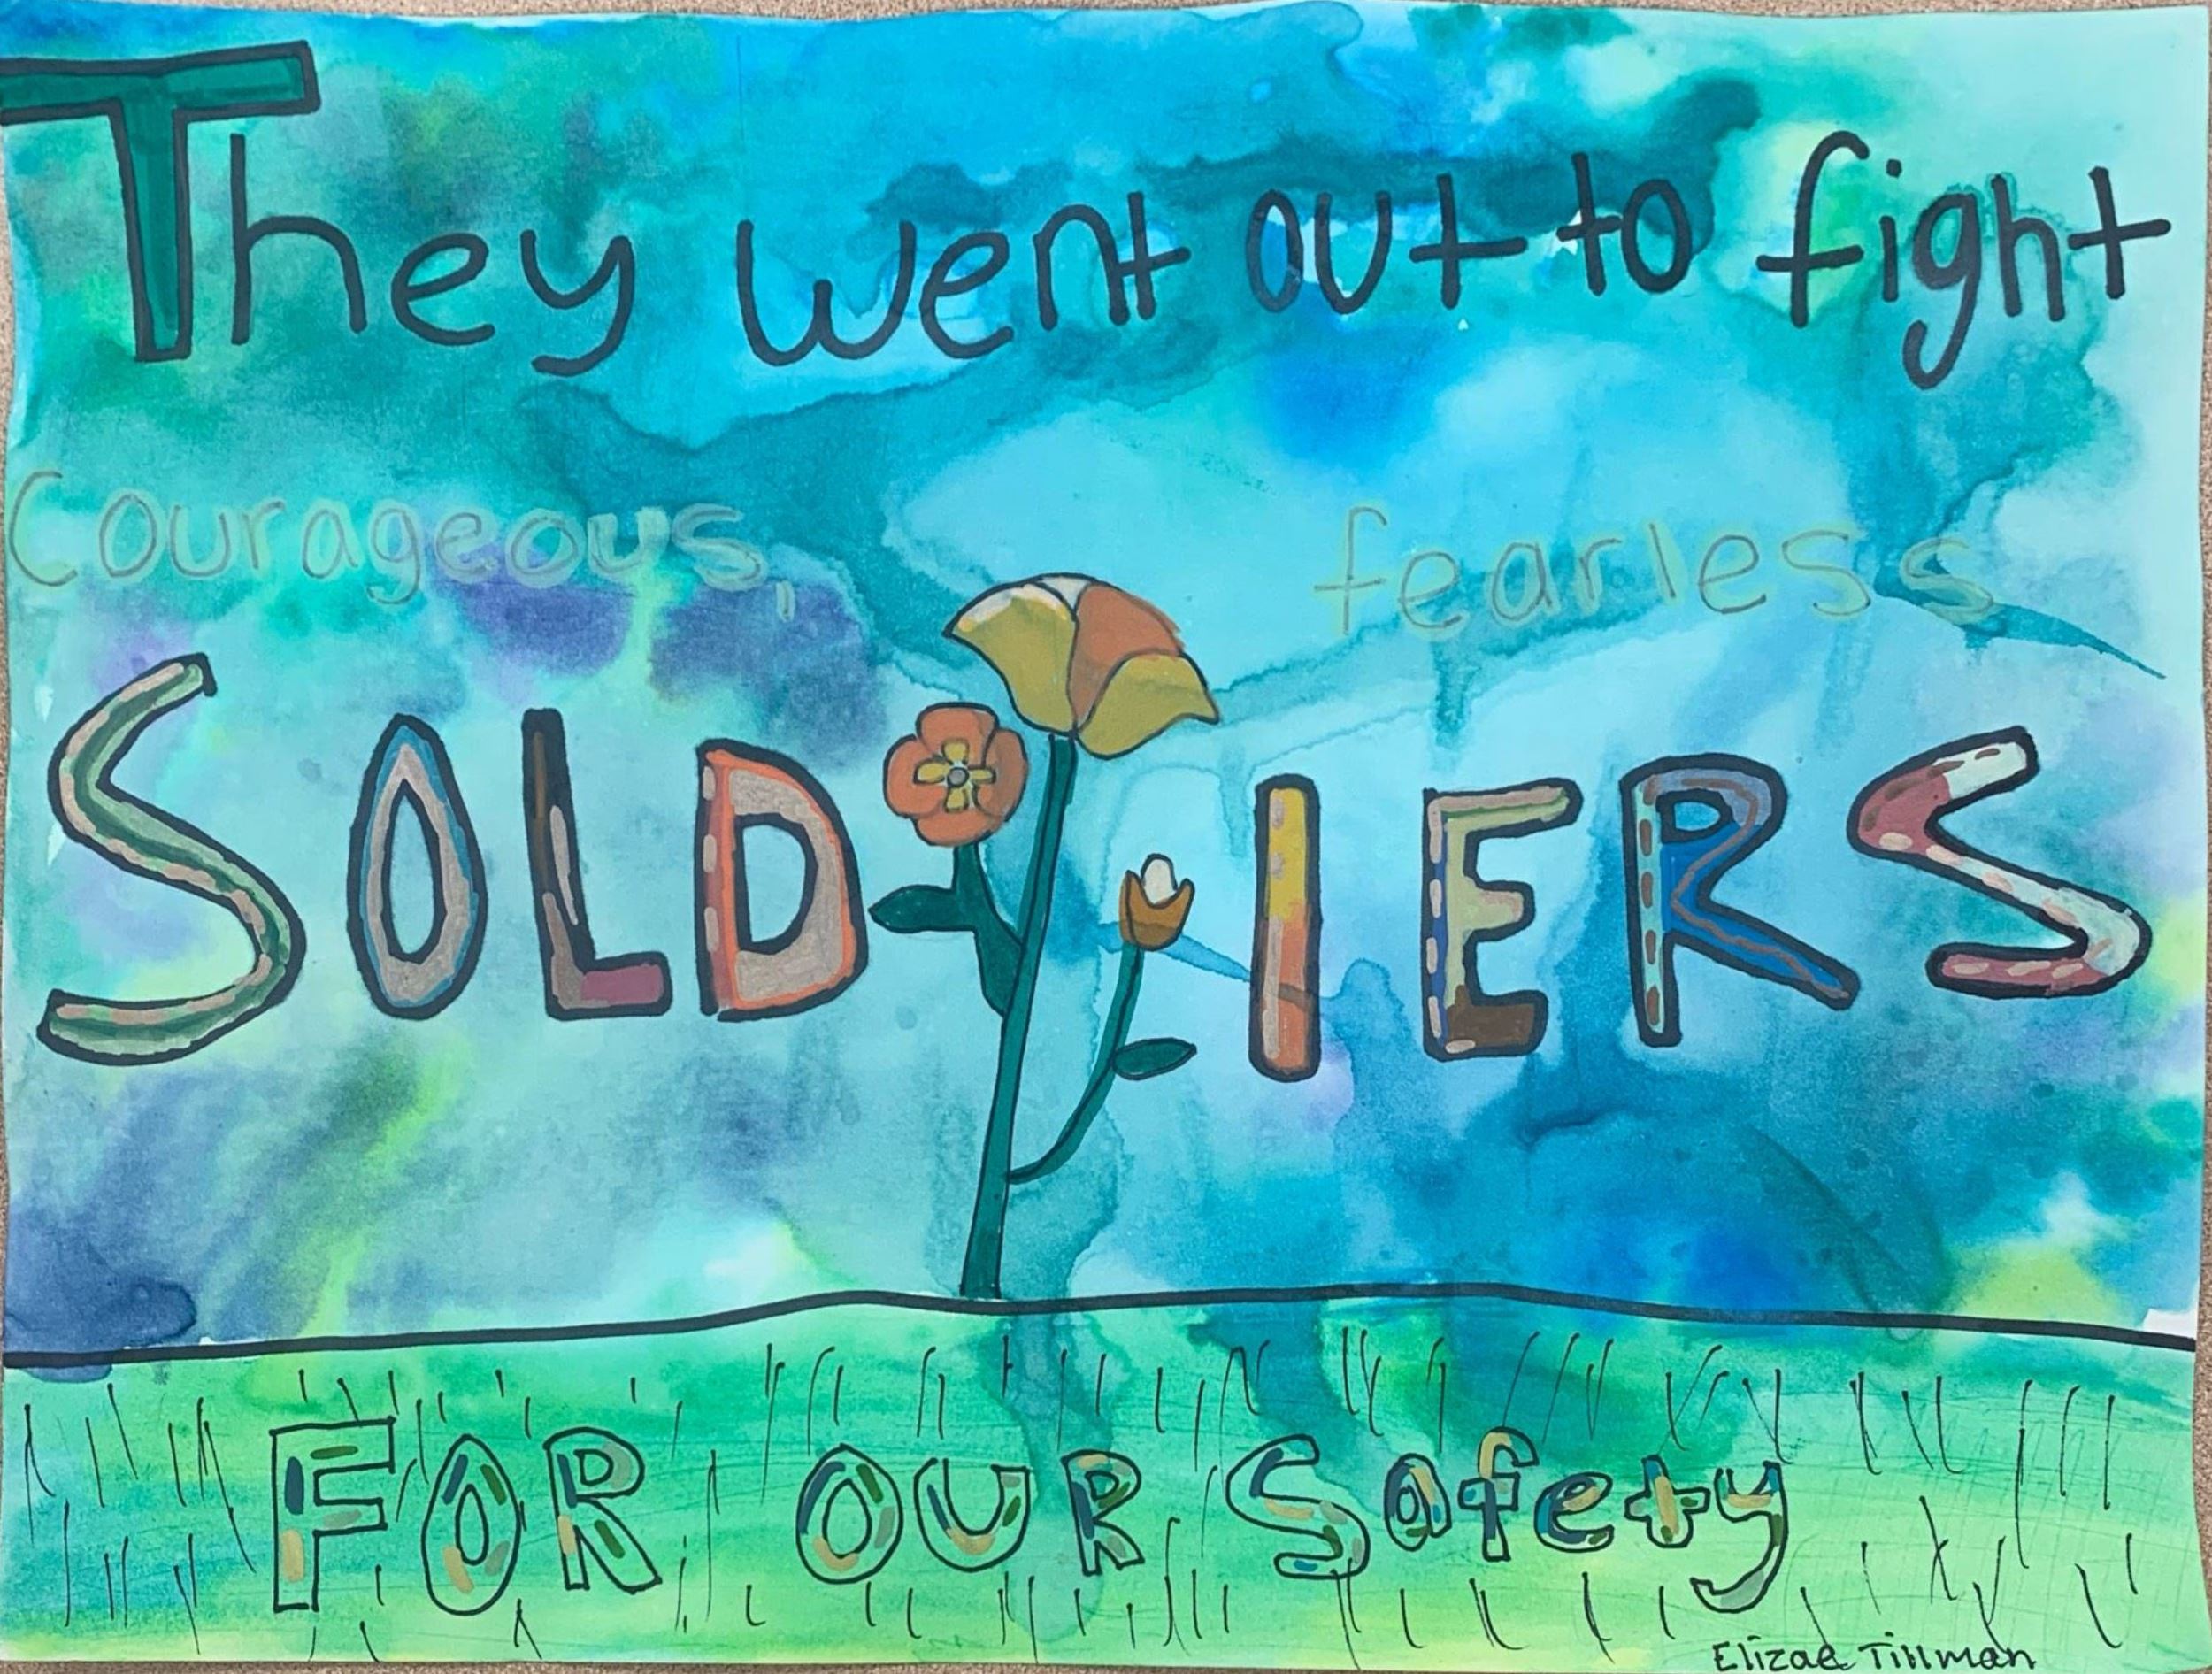 They went out to fight
Courageous, fearless
SOLDIERS
FOR OUR Safety
Elizae Tillman